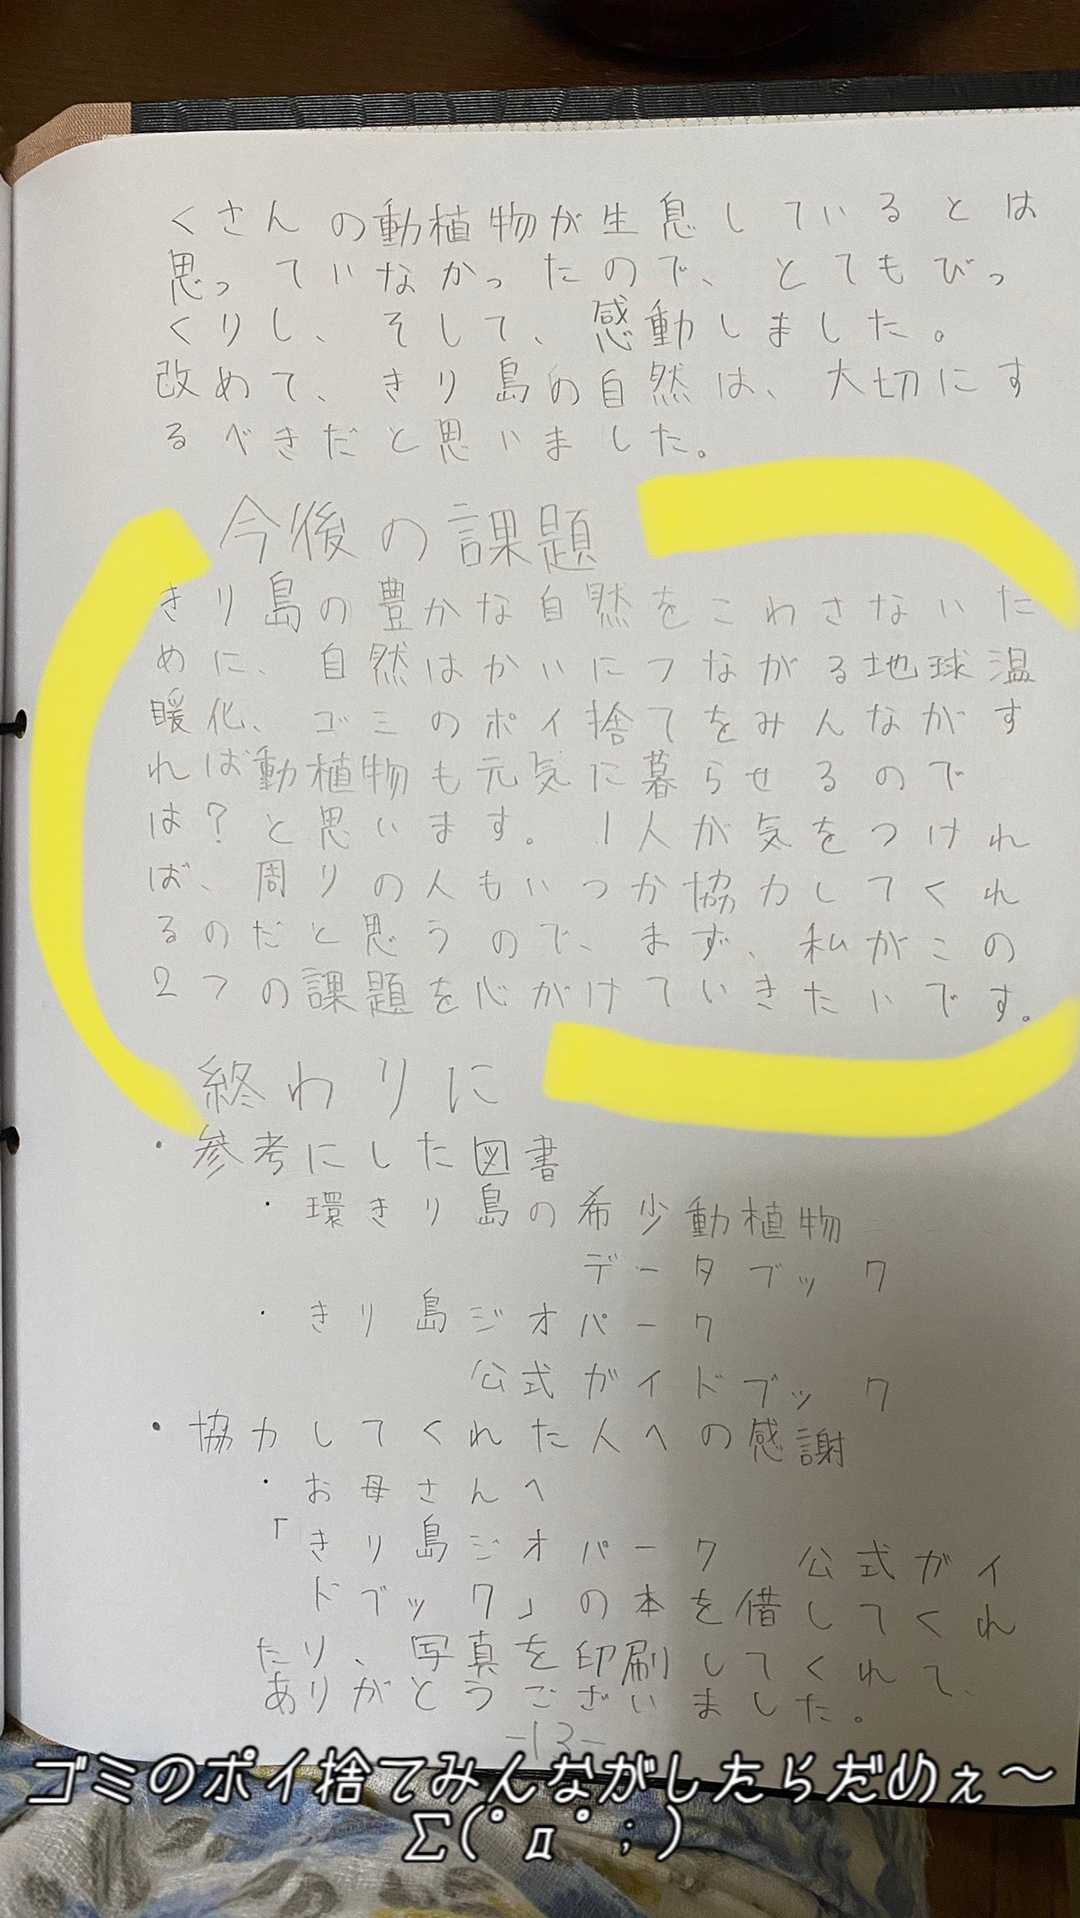 くさんの動植物が生息しているとは
思っていなかったので、とてもびっ
くりし、そして、感動しました。
改めて、きり島の自然は、大切にす
るべきだと思いました。
今後の課題
きり島の豊かな自然をこわさないた
めに、自然はかいにつながる地球温
暖化、ゴミのポイ捨てをみんながす
れば動植物も元気に暮らせるので
は?と思います。1人が気をつけれ
ば、周りの人もいつか協力してくれ
るのだと思うので、まず、私がこの
2つの課題を心がけていきたいです。
終わりに
・参考にした図書
・環きり島の希少動植物
データブック
・きり島ジオパーク
公式ガイドブック
・協力してくれた人への感謝
・お母さんへ
「きり島ジオパーク 公式ガイ
ドブック」の本を借してくれ
たり、写真を印刷してくれて、
ありがとうございました。
-13-
ゴミのポイ捨てみんながしたらだめぇ〜
Σ(ﾟдﾟ；)